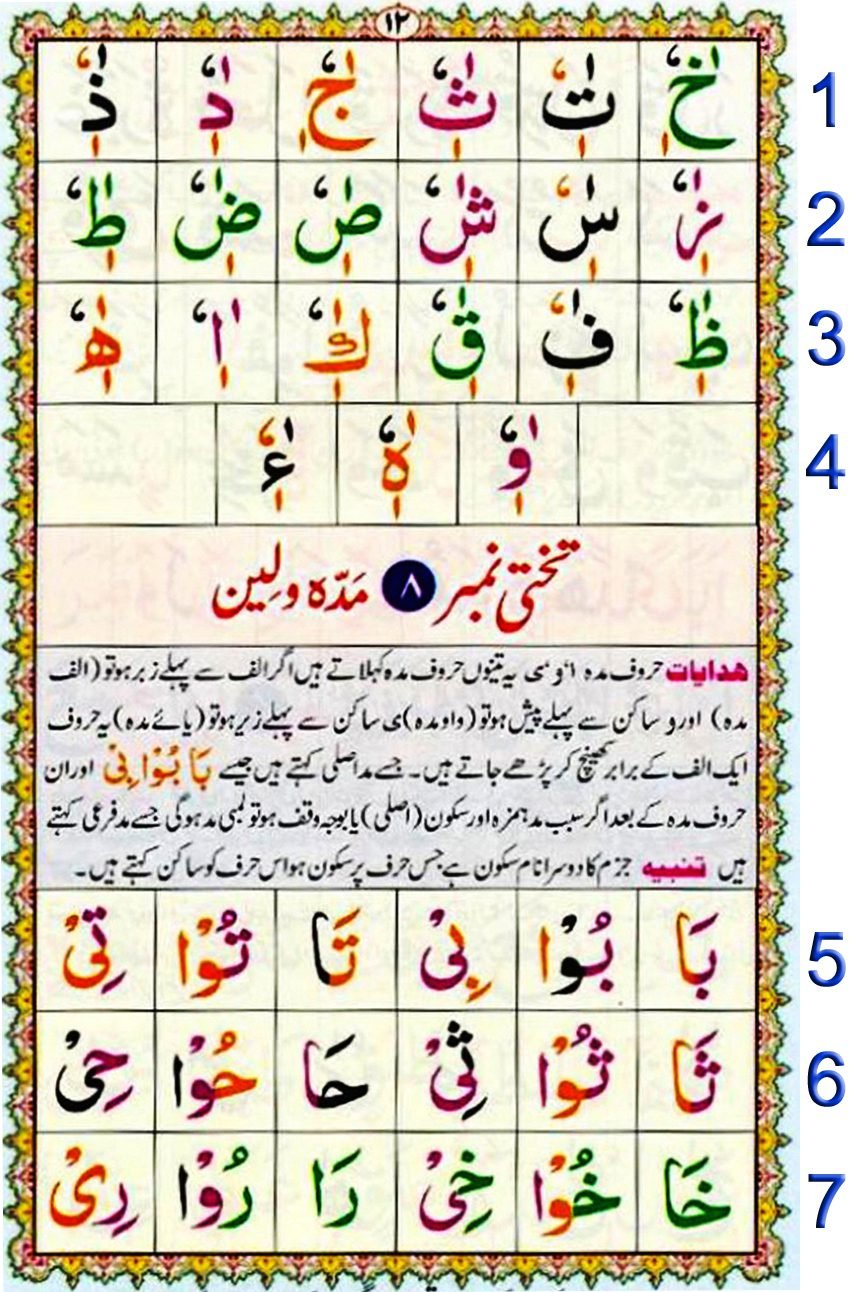 ١٢
خٰٖٗ تٰٖٗ ثٰٖٗ جٰٖٗ دٰٖٗ ذٰٖٗ 1
زٰٖٗ سٰٖٗ شٰٖٗ صٰٖٗ ضٰٖٗ طٰٖٗ 2
ظٰٖٗ فٰٖٗ قٰٖٗ كٰٖٗ اٰٖٗ ھٰٖٗ 3
وٰٖٗ ہٰٖٗ ءٰٖٗ 4
تختی نمبر ٨ مَدّہ و لِین
ھدایات حروف مدہ ا، و، ی یہ تینوں حروف مدہ کہلاتے ہیں اگر الف سے پہلے زبر ہو تو (الف
مدہ) اور و ساکن سے پہلے پیش ہو تو (واو مدہ) ی ساکن سے پہلے زیر ہو تو (یائے مدہ) یہ حروف
ایک الف کے برابر کھینچ کر پڑھے جاتے ہیں۔ جسے مد اصلی کہتے ہیں جیسے بَا بُوْا بِیْ اور ان
حروف مدہ کے بعد اگر سبب مد ہمزہ اور سکون (اصلی) یا بوجہ وقف ہو تو لمبی مد ہوگی جسے مد فرعی کہتے
ہیں تنبیہ جزم کا دوسرا نام سکون ہے جس حرف پر سکون ہو اس حرف کو ساکن کہتے ہیں۔
بَا بُوْا بِیْ تَا تُوْا تِیْ 5
ثَا ثُوْا ثِیْ حَا حُوْا حِیْ 6
خَا خُوْا خِیْ رَا رُوْا رِیْ 7